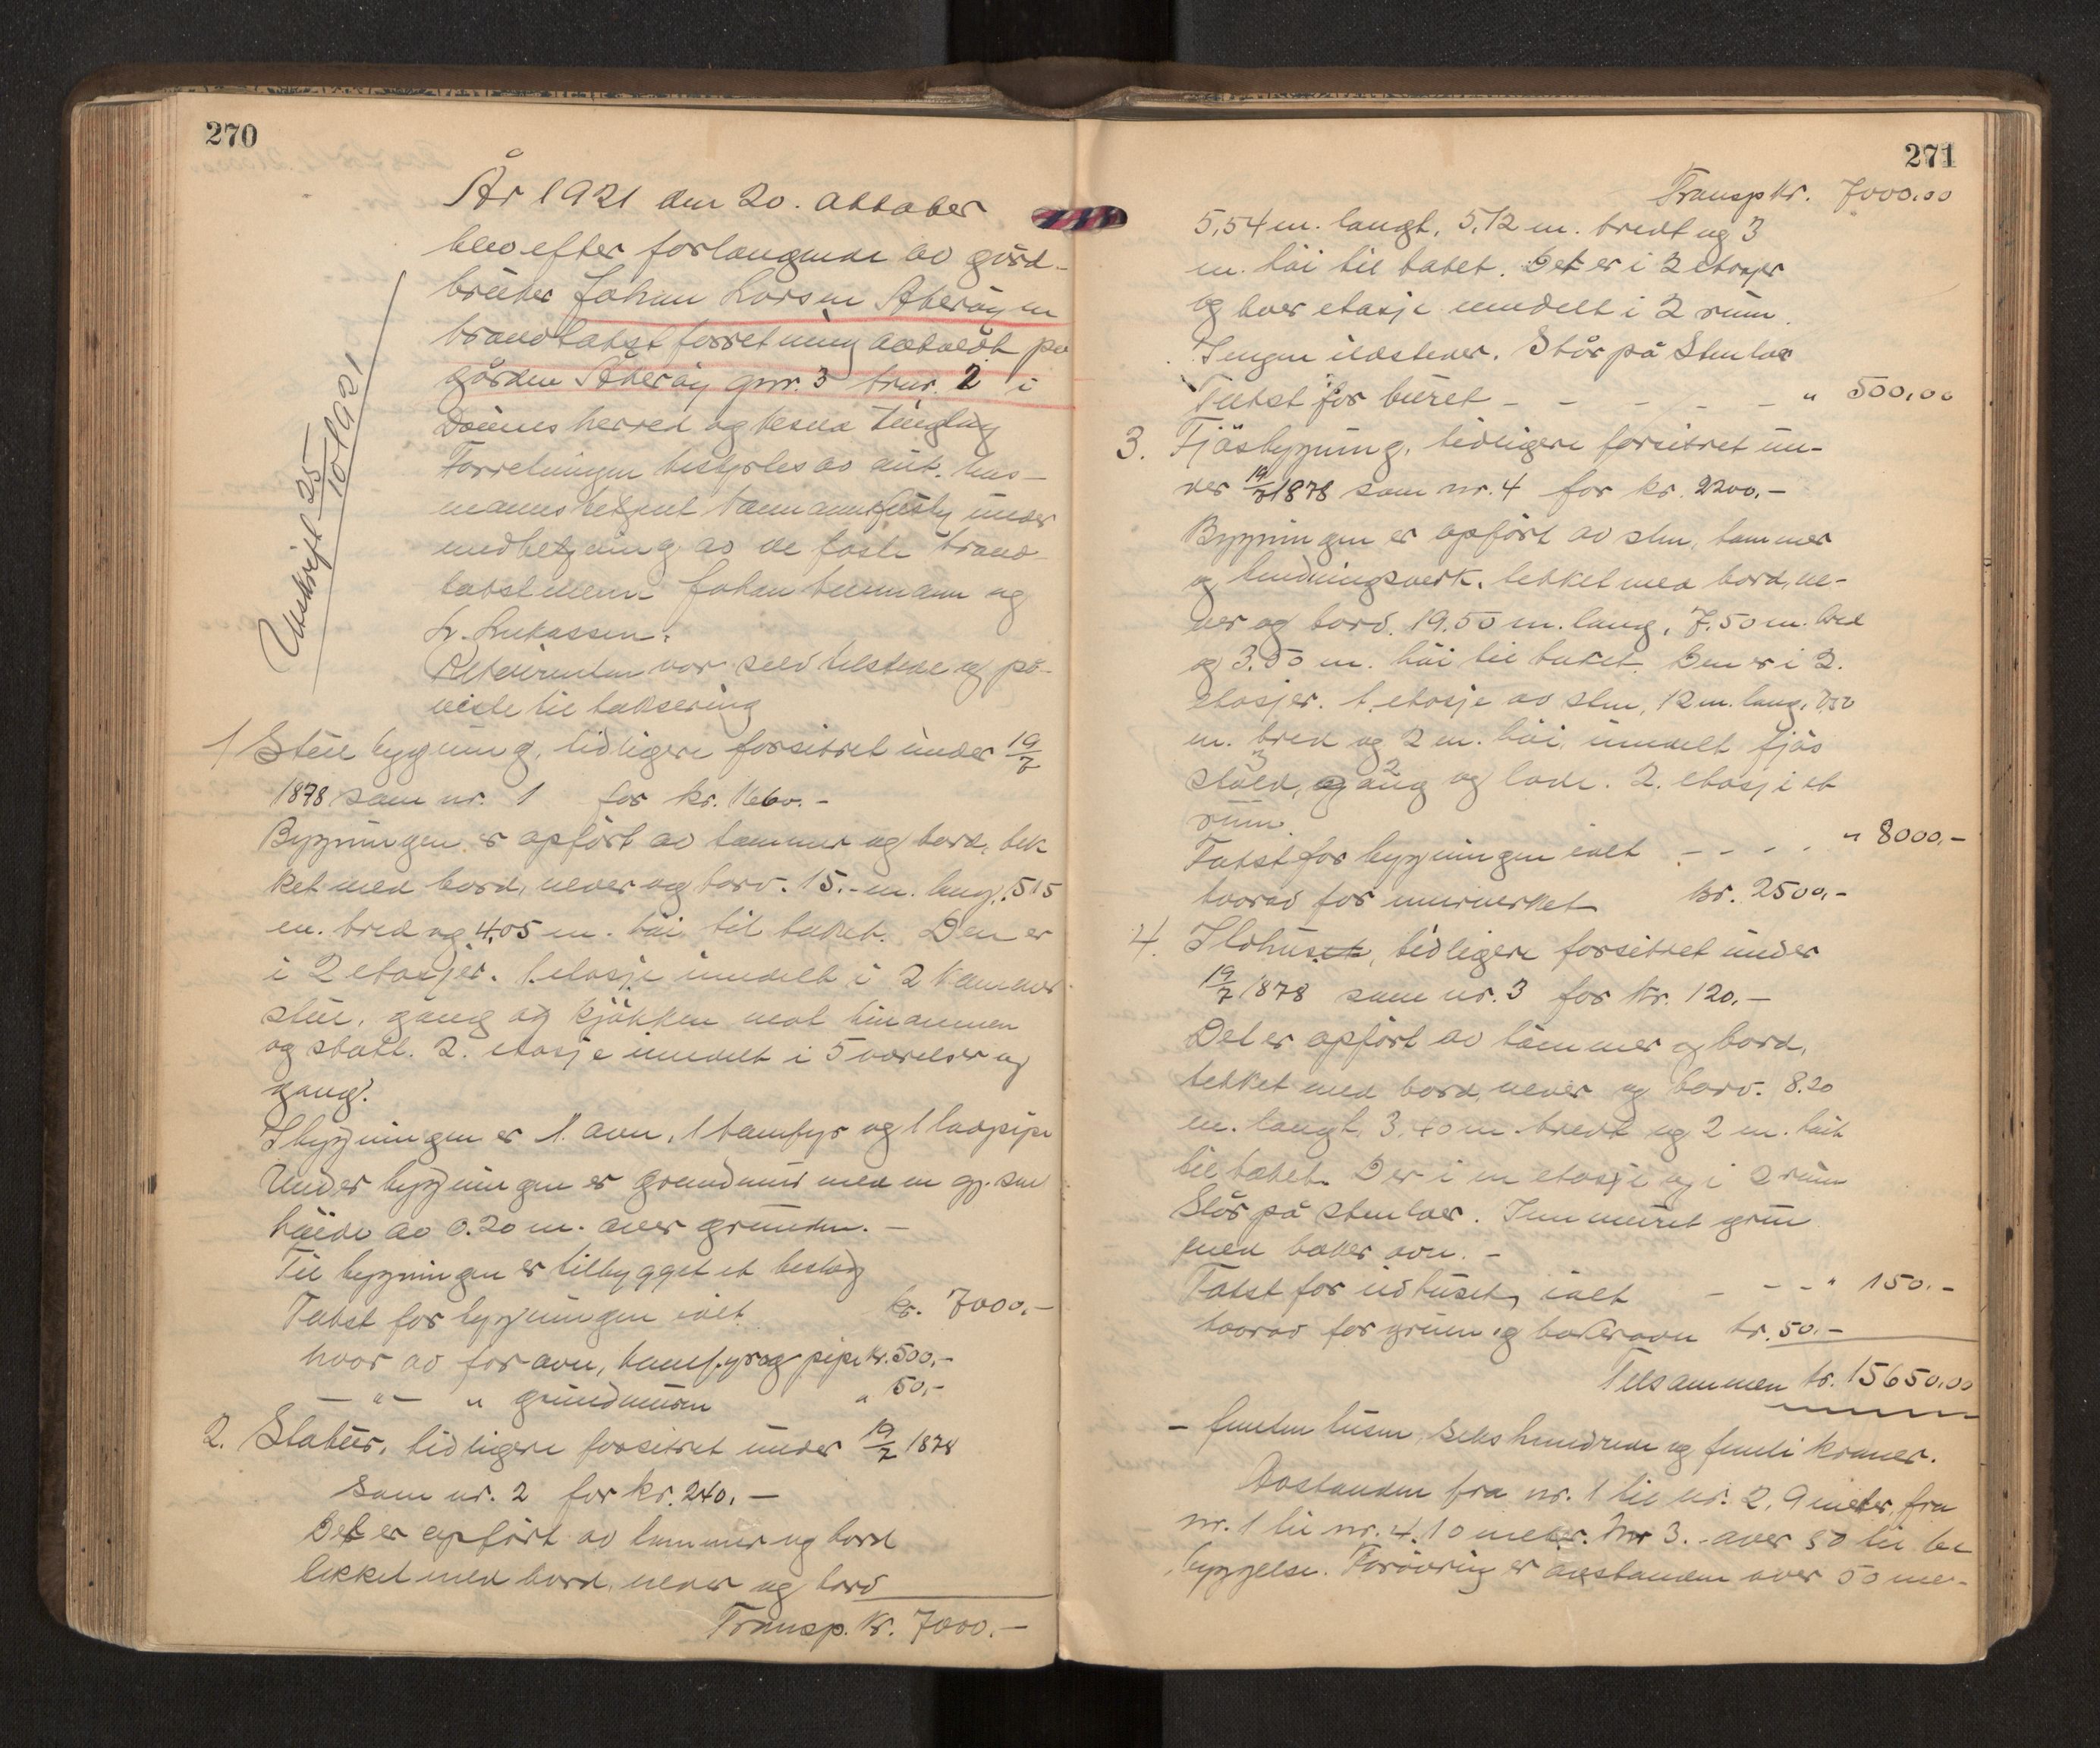 270
År 1921 den 20. oktober
blev efter forlangende av gård-
bruker Johan Larsen Åkerøyen
brandtakstforretning avholdt på
gården Åkerøy gnr. 3 brnr. 2 i
Dønnes herred og Nesna tinglag
Forretningen bestyrles av aut. lens-
mannsbetjent under
medbetjening av de faste brand-
takstmenn Johan og
L. Lukassen.
Rekvirenten var selv tilstede og på-
viste til taksering
Utskrift 25/10 1921
1 Stuebygning, tidligere forsikret under 19/7
1878 som nr. 1 for kr. 1660.-
Bygningen er opført av tømmer og bord, tek
ket med bord, never og torv. 15.- m. lang, 5,15
m. bred og 4,05 m. høi til taket. Den er
i 2 etasjer. 1. etasje inndelt i 2 kammer
stue, gang og kjøkken
og 2. etasje inndelt i 5 værelser og
gang.
I bygningen er 1 ovn, 1 komfyr og 1 ladpipe
Under bygningen er grundmur med en gj. sn.
høide av 0.20 m. over grunden. -
Til bygningen er tilbygget et bislag
Takst for bygningen ialt kr. 7000.-
hvorav for ovn, komfyr og pipe kr. 500.-
— " — " grundmuren " 50.-
2. Stabur, tidligere forsikret under 19/7 1878
som nr. 2 for kr. 240. -
Det er opført av tømmer og bord
tekket med bord, never og torv
Transp. kr. 7000. -
271
Transp kr. 7000.00
5,54 m. langt, 5,12 m. bredt og 3
m. høi til taket. Det er i 2 etasjer
og hver etasje inndelt i 2 rum.
Ingen ildsteder. Står på stenlaer
Takst for buret - - - - - " 500,00
3. Fjøsbygning, tidligere forsikret un-
der 19/7 1878 som nr. 4 for kr. 2200.-
Bygningen er opført av sten, tømmer
og bindningsverk, tekket med bord, ne-
ver og torv. 19.50 m. lang, 7.50 m. bred
og 3.50 m. høi til taket. Den er i 2.
etasjer. 1. etasje av sten, 12 m. lang, 7,50
m. bred og 2 m. høi, inndelt fjøs
stald, gang og lade. 2. etasje et
rum.
Takst for bygningen ialt - - - - " 8000,-
hvorav for murverket kr. 2500,-
4. Ildhuset, tidligere forsikret under
19/7 1878 som nr. 3 for kr. 120. -
Det er opført av tømmer og bord,
tekket med bord, never og torv. 8.20
m. langt, 3.40 m. bredt og 2 m. høit
til taket. Der i en etasje og i 2 rum
Står på stenlaer. Innmuret grue
med bakerovn. -
Takst for ildhuset, ialt - - - " 150. -
hvorav for gruen og bakerovn kr. 50. -
Tilsammen kr. 15650,00
- femten tusen, seks hundrede og femti kroner.
Avstanden fra nr. 1 til nr. 2, 9 meter, fra
nr. 1 til nr. 4. 10 meter. Nr 3. over 50 til be
byggelse. Forøvrig er avstanden over 50 me-